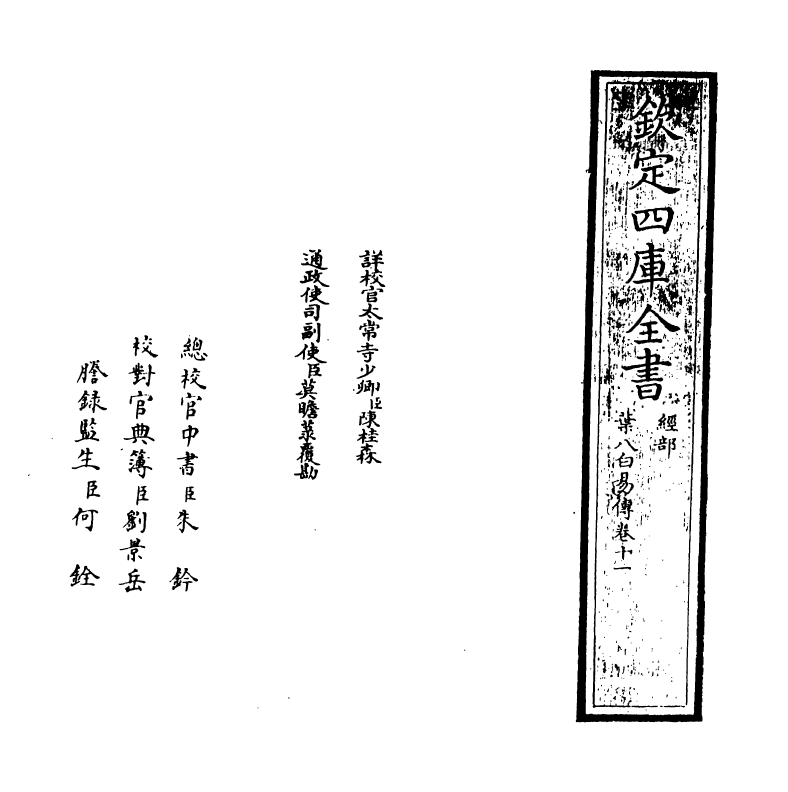 欽定四庫全書
經部
葉八白易傳卷十一
詳校官太常寺少卿臣陳桂森
通政使司副使臣莫瞻菉覆勘
總校官中書臣朱鈐
校對官典簿臣劉景岳
謄錄監生臣何銓